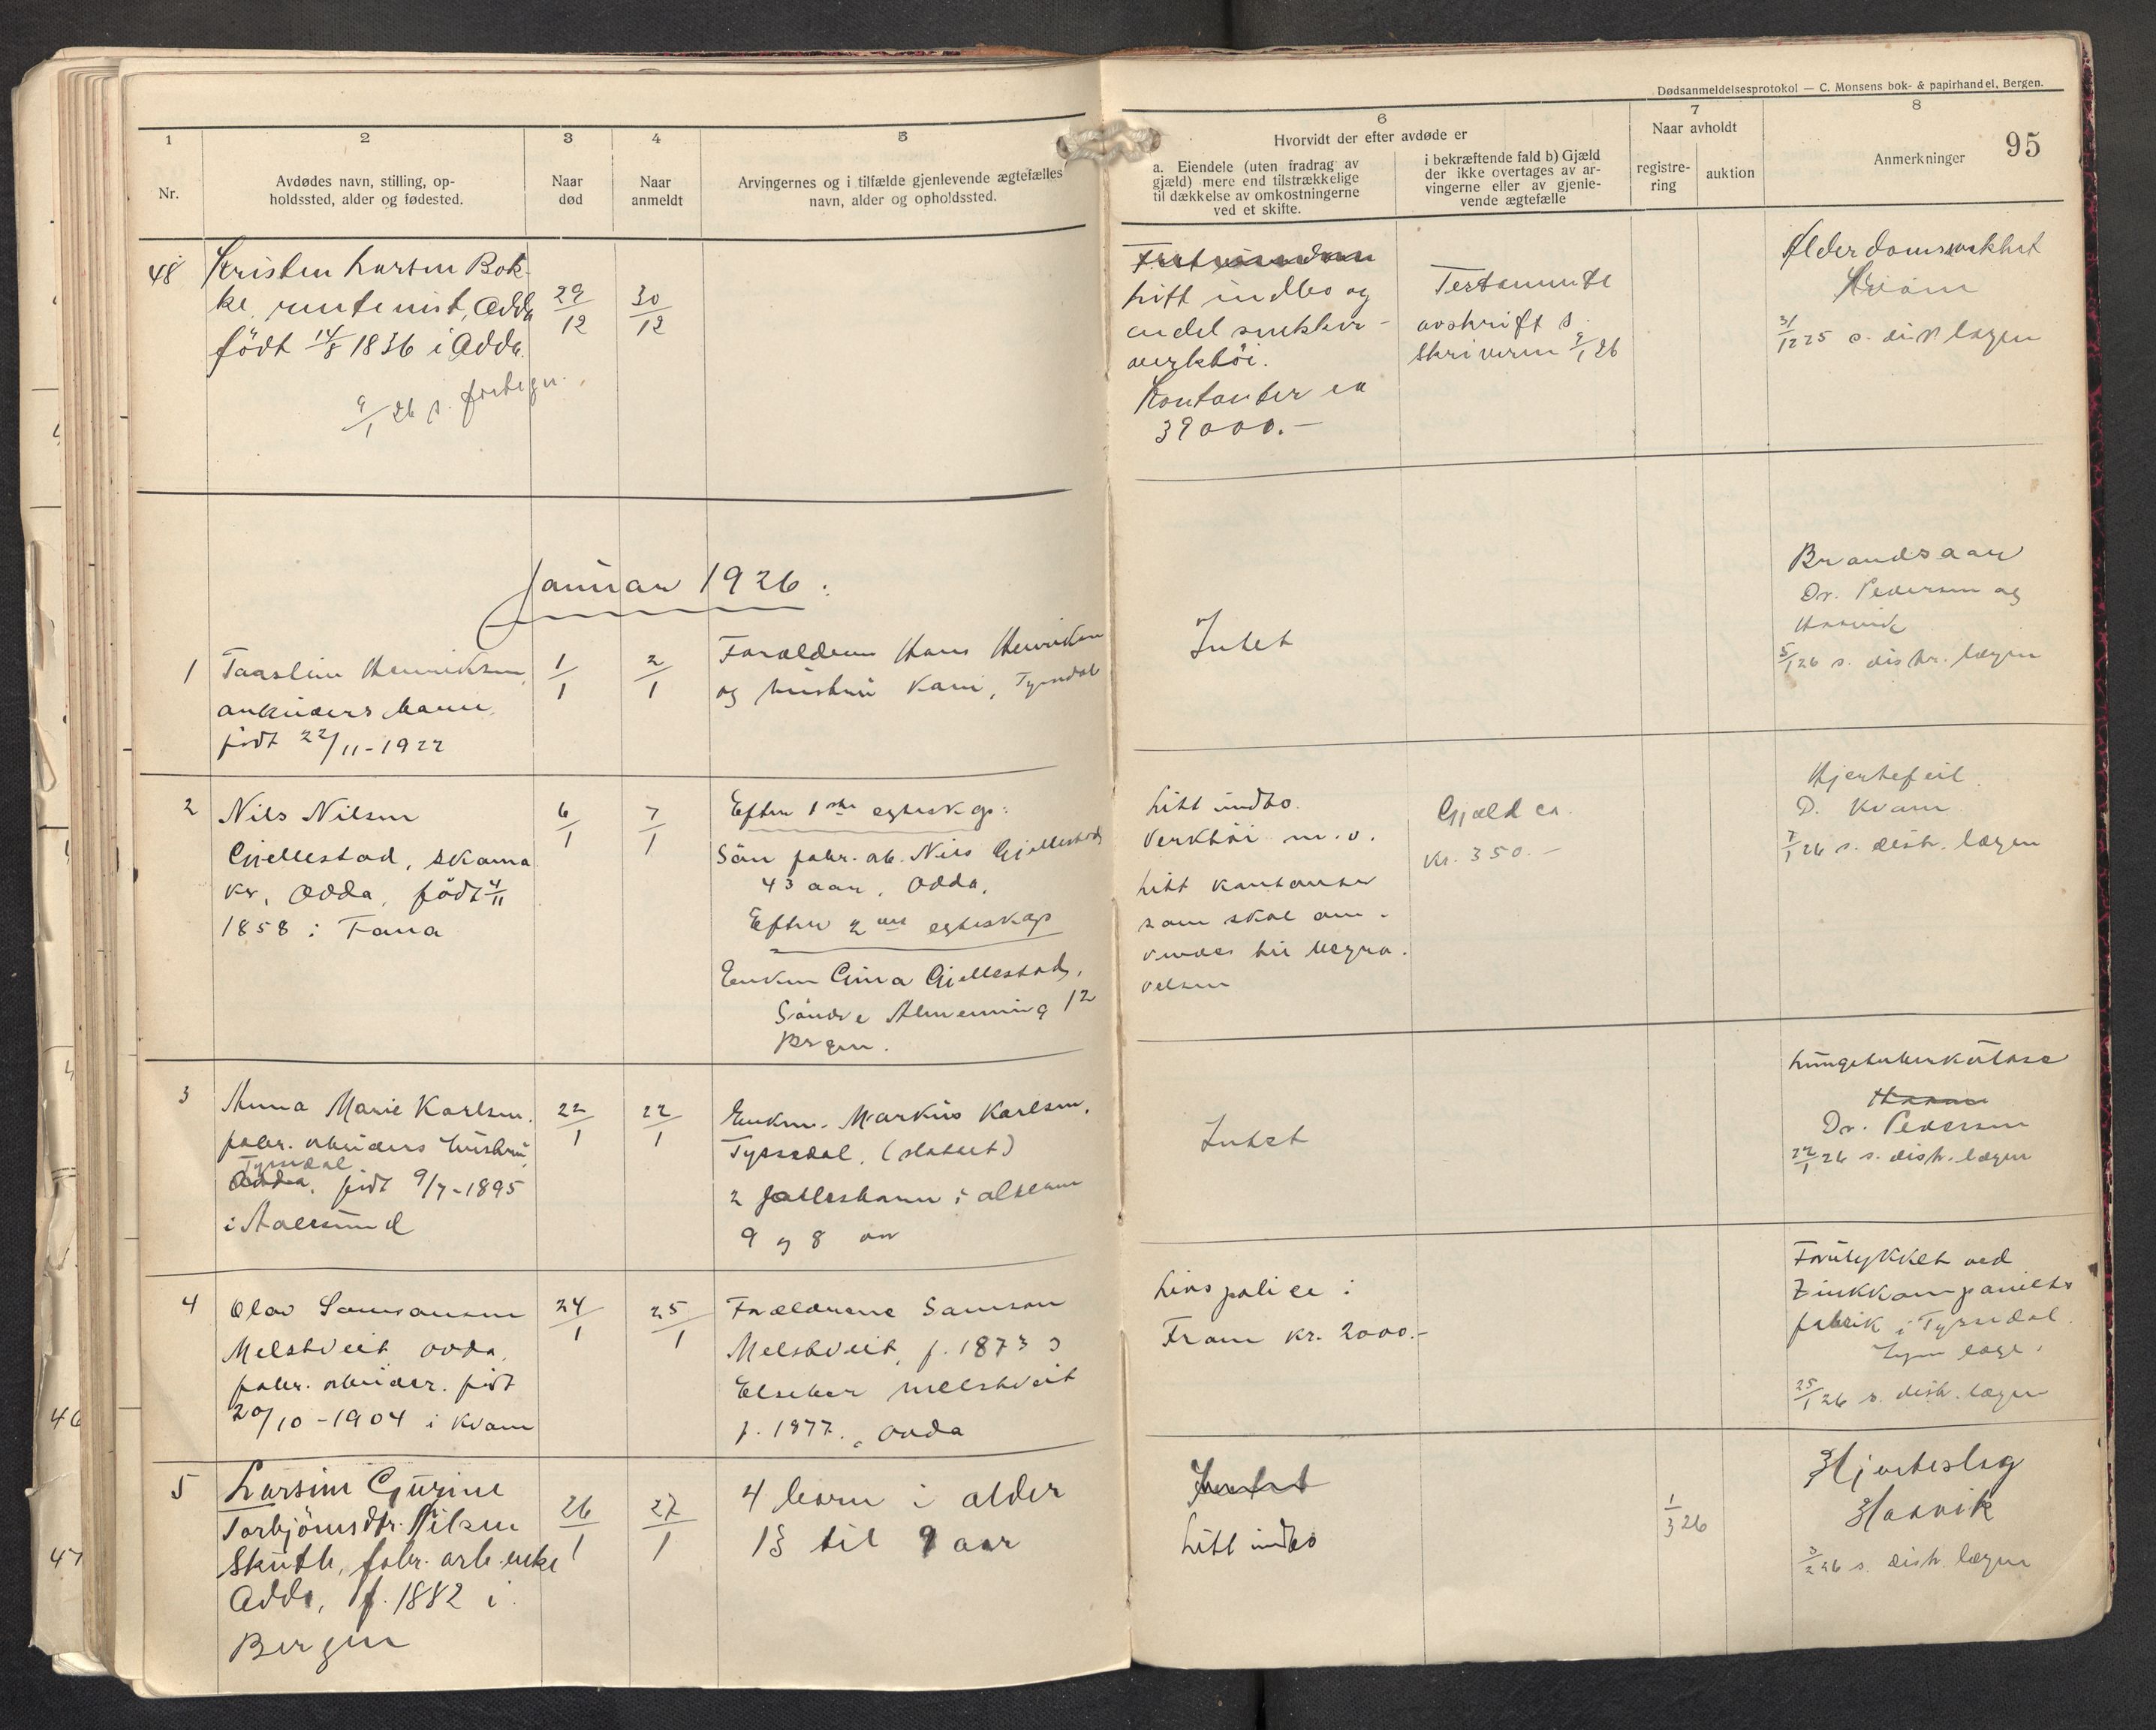 Dødsanmeldelsesprotokol — C. Monsens bok- & papirhandel, Bergen.
95
1
Nr.
2
Avdødes navn, stilling, op-
holdssted, alder og fødested.
3
Naar
død
4
Naar
anmeldt
5
Arvingernes og i tilfælde gjenlevende ægtefælles
navn, alder og opholdssted.
6
Hvorvidt der efter avdøde er
a. Eiendele (uten fradrag av
gjæld) mere end tilstrækkelige
til dækkelse av omkostningerne
ved et skifte.
i bekræftende fald b) Gjæld
der ikke overtages av ar-
vingerne eller av gjenle-
vende ægtefælle
7
Naar avholdt
registre-
ring
auktion
8
Anmerkninger
48
Kristen Larsen Bok-
ke, rentenist, Odda
født 14/8 1836 i Odda.
9/1 26 s. fortegn.
29/12
30/12
litt indbo og
endel snekker-
verktöi.
Kontanter ca
39000.-
Testamente
avskrift s.
skriveren 9/1 26
Alderdomssvakhet
31/12 25 s. distr. lægen
Januar 1926.
1
Taaslein Henriksen,
arbeiders barn,
født 22/11-1922
1/1
2/1
Forældrene Hans Henriksen
og hustru Kari, Tyssedal
Intet
Brandsaar
Dr. Pedersen og
Haavik
5/1 26 s. distr. lægen
2
Nils Nilsen
Gjellestad, skoma
ker, Odda, født 4/11
1858 i Fana
6/1
7/1
Efter 1ste egteskap:
Sön fabr. arb. Nils Gjellestad,
43 aar, Odda,
Efter 2det egteskap
Enken Gina Gjellestad,
Söndre Almenning 12
Bergen.
Litt indbo.
Verktöi m.v.
Litt kontanter
som skal an-
vendes til begra-
velsen
Gjæld ca.
kr. 350.-
Hjertefeil.
D. Kvam
7/1 26 s. distr. lægen
3
Anna Marie Karlsen,
fabr. arbeiders hustru,
Tyssedal
Odda, født 9/7-1895
i Aalesund
22/1
22/1
Enkem. Markus Karlsen,
Tyssedal,
2 fællesbarn i alderen
9 og 8 aar
Intet
Lungetuberkulose
Dr. Pedersen
22/1 26 s. distr. lægen
4
Olav Samsonsen
Melstveit Odda,
fabr. arbeider, født
20/10-1904 i Kvam
24/1
25/1
Forældrene Samson
Melstveit, f. 1873 og
Elseber Melstveit
f. 1877, Odda
Livspolice i
Fram kr. 2000.-
Forulykket ved
Zinkkompaniets
fabrik i Tyssedal.
25/1 26 s. distr. lægen
5
Larsine Gurine
Torbjörnsdtr. Nilsen
Skutle, fabr. arb. enke
Odda, f. 1882 i
Bergen
26/1
27/1
4 barn i alder
13 til 9 aar
Intet
Litt indbo
1/3 26
Hjerteslag
Haavik
3/2 26 s. distr. lægen
46
47